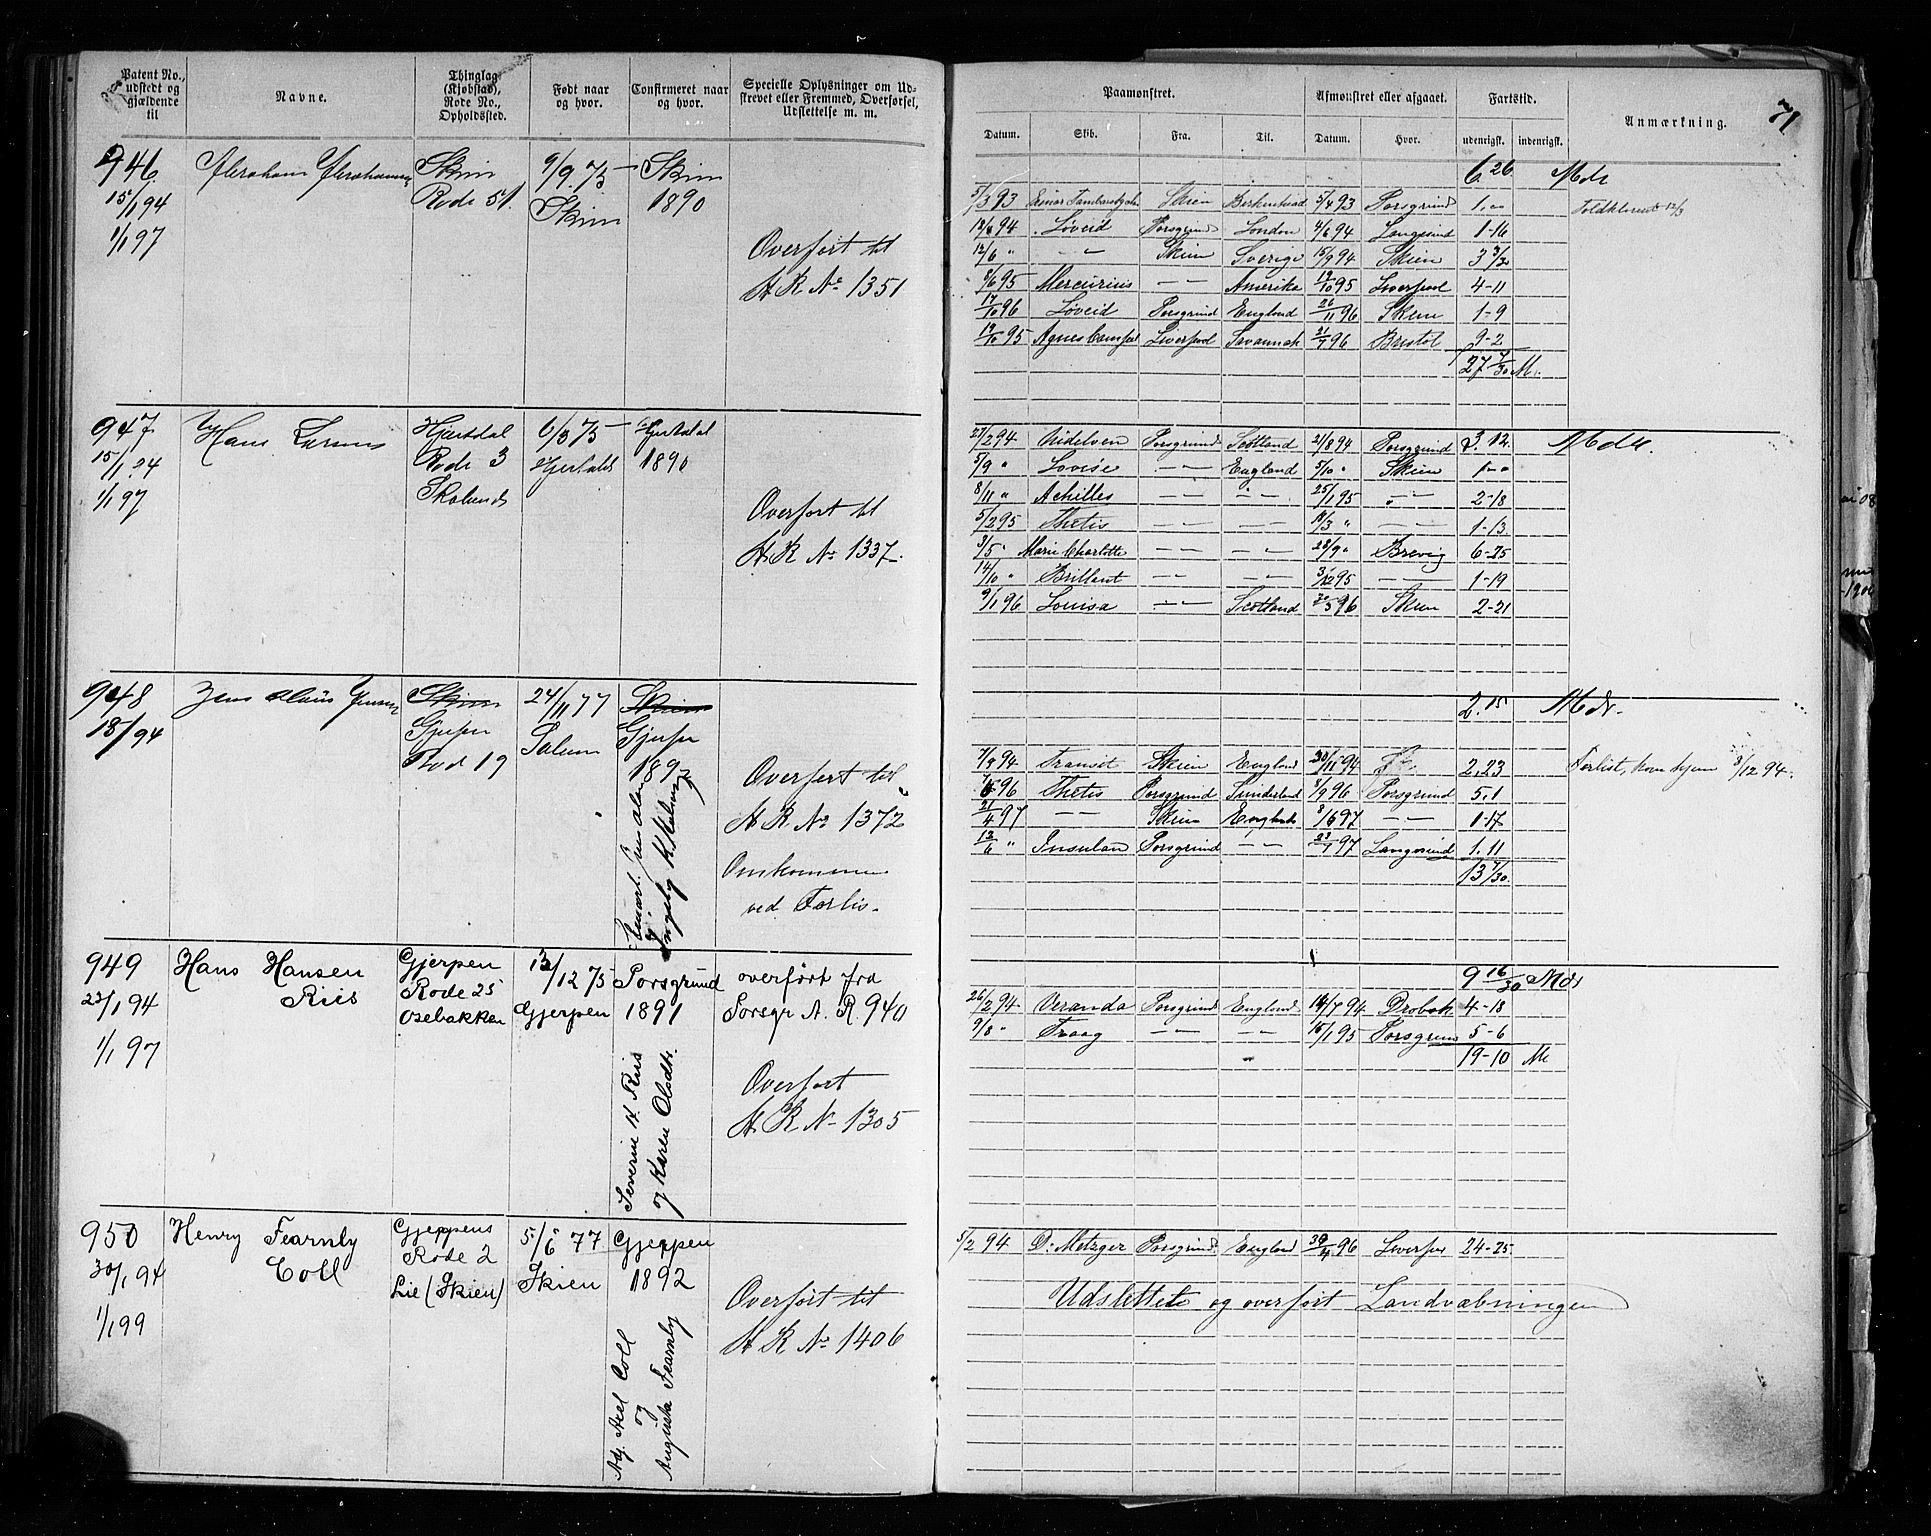 Patent No., udstedt og gjældende til
Navne.
Thinglag (Kjøbstad), Rode No., Opholdssted.
Født naar og hvor.
Confirmeret naar og hvor.
Specielle Oplysninger om Udskrevet eller Fremmed, Overførsel, Udslettelse m. m.
Paamønstret.
Afmønstret eller afgaaet.
Fartstid.
Anmærkning.
71
Datum.
Skib.
Fra.
Til.
Datum.
Hvor.
udenrigsk.
indenrigsk.
946.
15/1 94
1/1 97
Abraham Abrahamsen
Skien
Rode 51.
9/9. 75
Skien
Skien
1890
Overført til
H R No 1351
6 26 Mdr
5/3 93 Skien Birkenhead 5/4 93 Porsgrund 1.
94 Løveid Porsgrund London 4/6 94 Langesund 1-16
12/6 " - " - Skien Sverige 15/9 94 Skien 3
8/6 95 Mercurius - - Amerika 12/10 95 Liverpool 4-11
17/10 96 Løveid Porsgrund England 26/11 96 Skien 1-9
12/10 95 Liverpool Savannah 21/7 96 Bristol 9-2
27 7/30 M.
947
15/1 94
1/1 97
Hans Larsen
Hjertdal
Rode 3
6/3 75
Hjertdal
1890
Overført til
H R No 1337.
27/2 94 Nidelven Porsgrund Scotland 21/8 94 Porsgrund 3. 12. Mdr.
5/9 " Lovise - - England 5/10 " Skien 1--
8/11 " Achilles - - - - 25/1 95 - - 2-18
5/2 95 Thetis - - - - 18/3 " - - 1-13
3/5 " Marie Charlotte - - - - 28/9 " Brevig 6-25
14/10 " Brillant - - - - 3/12 95 - - 1-19
9/1 96 Louisa - - Scotland 96 Skien 2-21
948
18/1 94
Jens Jensen
Skien
Gjerpen
Rod 19
24/11 77
Solum
Skien
Gjerpen
189
Overført til
H R No 1372
Omkommen
ved Forlis.
2. 15 Mdr.
7/9 94 Transit Skien England 30/11 94 2.23 Forlist, kom hjem 8/12 94.
96 Thetis Porsgrund Sunderland 8/9 96 Porsgrund 5.1
21/4 97 - - Skien England 8/6 97 - - 1.17
12/6 " Insulan Porsgrund - - 97 Langesund 1.11
13 7/30.
949
23/1 94
1/1 97
Hans Hansen
Riis
Gjerpen
Rode 25
Osebakken
13/12 75
Gjerpen
Porsgrund
1891
Severin H. Riis
og Karen Olsdtr.
overført fra
Porsgr A. R. 940
Overført
H R No 1305
9 16/30 Mdr
26/2 94 Veranda Porsgrund England 14/7 94 Drobak 4-18
9/8 " Traag - - - - 15/1 95 Porsgrund 5-6
19-10 M
950
30/1 94
1/1 99
Henry Fearnly
Coll
Gjerpens
Rode 2
Lie (Skien)
5/6 77
Skien
Gjerpen
1892
Adj. Axel Coll
og
Augusta Fearnly
Overført til
H R No 1406
5/2 94 D. Metzger Porsgrund England 30/4 96 Liverpo 24-25
Udslettete og overført Landvæbningen